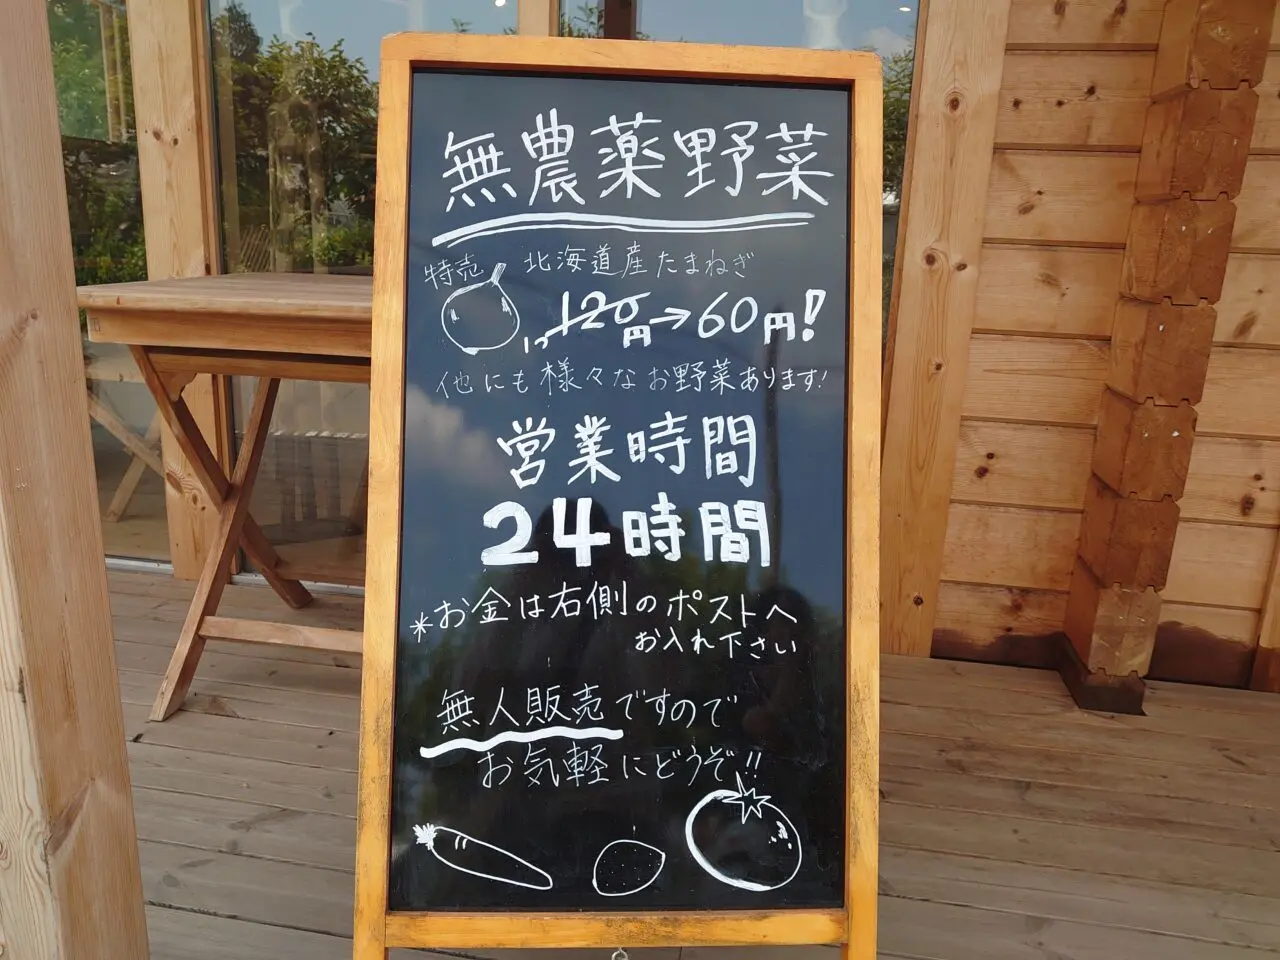 無農薬野菜
特売 北海道産たまねぎ
1つ 120円→60円!
他にも様々なお野菜あります!
営業時間
24時間
*お金は右側のポストへ
お入れ下さい
無人販売ですので
お気軽にどうぞ!!